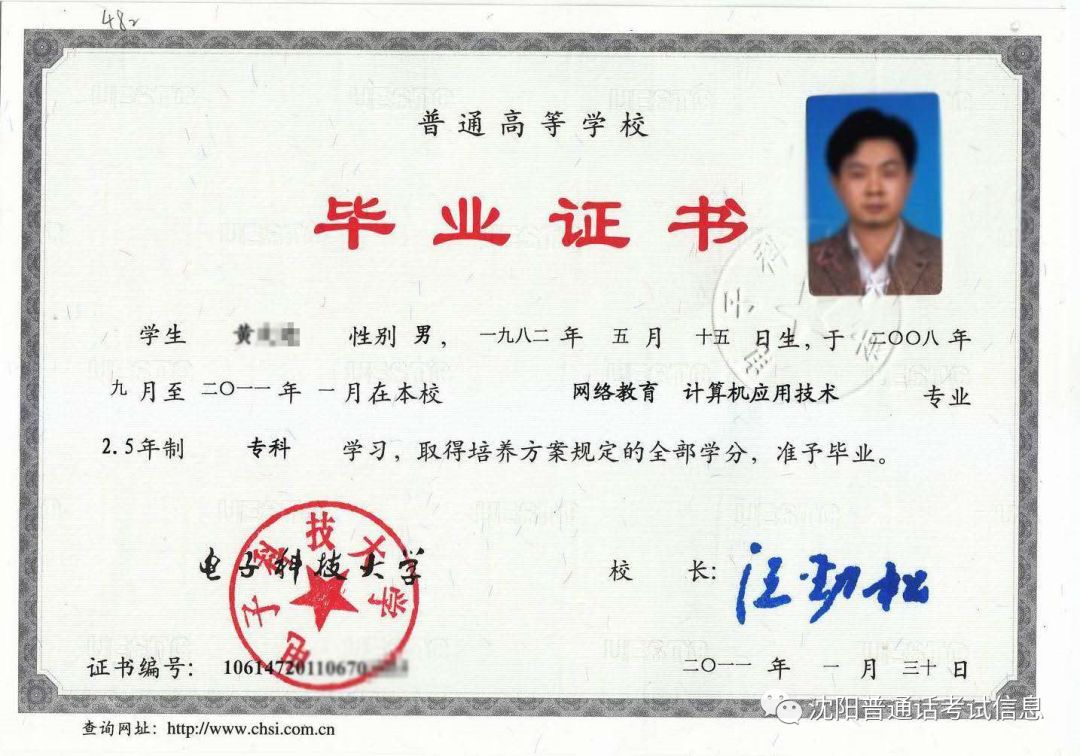 48
普通高等学校
毕业证书
学生 黄 性别 男， 一九八二 年 五 月 十五 日生，于 二〇〇八 年
九 月至 二〇一一 年 一 月在本校 网络教育 计算机应用技术 专业
2.5年制 专科 学习，取得培养方案规定的全部学分，准予毕业。
电子科技大学
电子科技大学
校 长： 汪劲松
证书编号： 10614720110670
二〇一一 年 一 月 三十 日
查询网址：http://www.chsi.com.cn
沈阳普通话考试信息